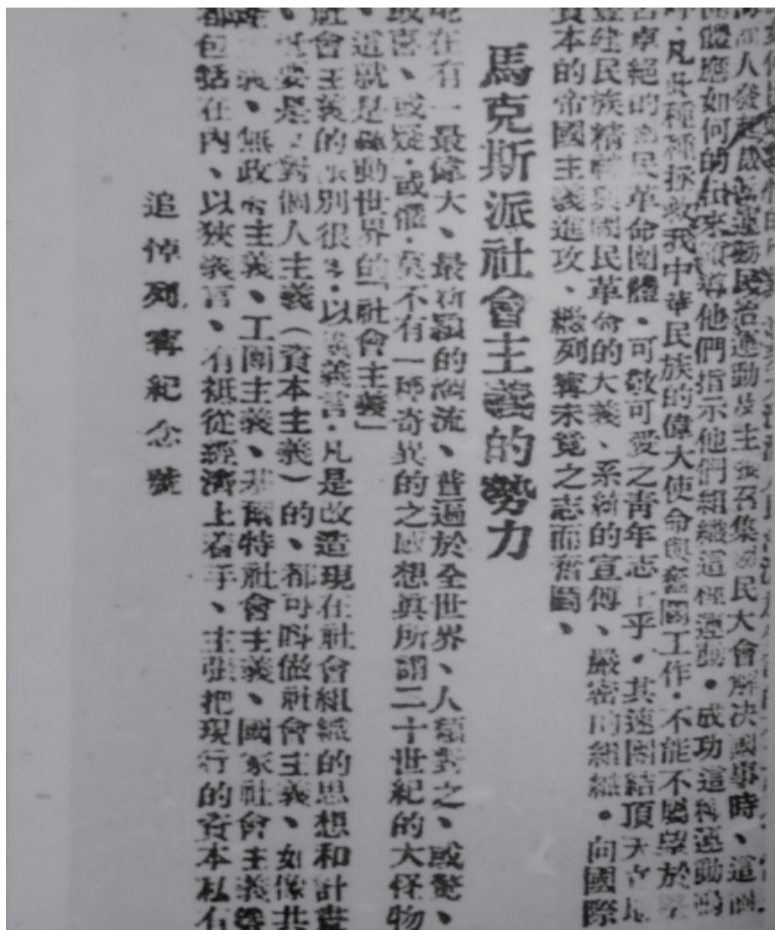 人發起民治運動及主張召集國民大會解决國事時、這
團體應如何的來領導他們指示他們組織這種運動。成功這種運動嗚
呼.凡此種種拯救我中華民族的偉大使命與奮鬪工作.不能不屬望於
苦卓絕的國民革命團體.可敬可愛之青年志士乎.其速團結頂天立地
建民族精神與國民革命的大義、系統的宣傳、嚴密的組織。向國際
資本的帝國主義進攻、繼列寧未竟之志而奮鬪、
馬克斯派社會主義的勢力
現在有一最偉大、最新穎的潮流、普遍於全世界、人類對之、或驚、
或喜、或疑.或懼.莫不有一種奇異的之感想眞所謂二十世紀的大怪物
、這就是轟動世界的「社會主義」
社會主義的派別很多.以廣義言.凡是改造現在社會組織的思想和計畫
、祇要是反對個人主義（資本主義）的、都可叫做社會主義、如像共
產主義、無政府主義、工團主義、基爾特社會主義、國家社會主義等
都包括在內、以狹義言、有祇從經濟上着手、主張把現行的資本私有
追悼列寧紀念號